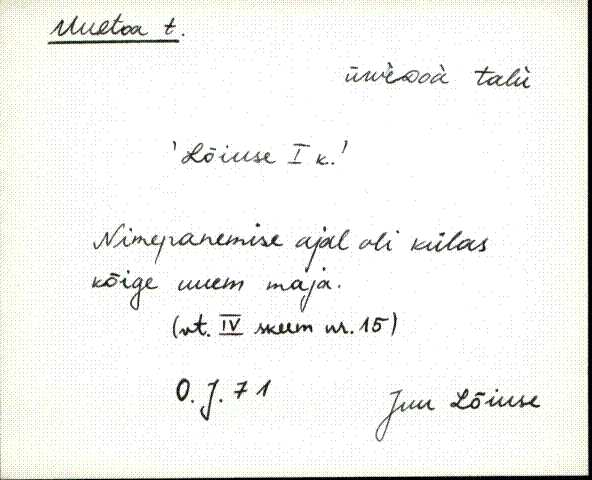 Uuetoa t.
talu
'Lõiuse I k.'
Nimepanemise ajal oli külas
kõige uuem maja.
(vt. IV skeem nr. 15)
O. J. 71
Juu Lõiuse